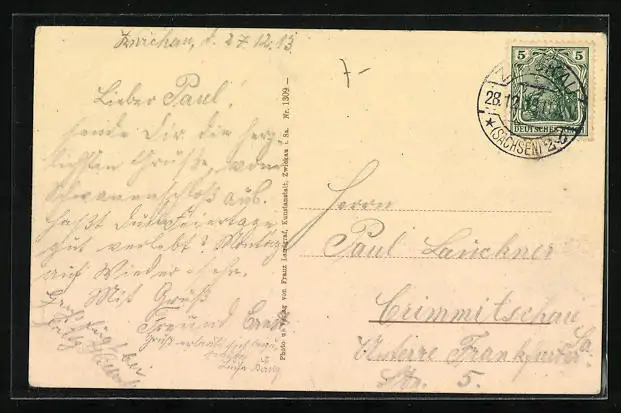 Zwickau, d. 27.12.13
Lieber Paul!
sende Dir die herz-
lichsten Grüße, vom
Schwanenschloß aus.
haßt Du die Feiertage
gut verlebt? Montag
auf Wieder sehn.
Mit Gruß
Freund
Photo u. Verlag von Franz Landgraf, Kunstanstalt, Zwickau i. Sa. Nr. 1309.
5 5
DEUTSCHES REICH
28.12.13
(SACHSEN)
Herrn
Paul Lauckner
Crimmitschau
Untere Frankfurter
Str. 5.
Sa.